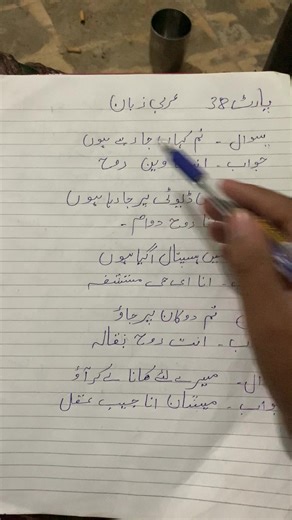 پارٹ 38 عربی زبان
سوال - تم کہاں جا رہے ہوں
جواب - انت وین روح
ڈیوٹی پر جا رہا ہوں
روح دوام -
میں ہسپتال آ گیا ہوں
انا ای جی مستشفہ
تم دوکان پر جاؤ
انت روح بقالہ
میرے لئے کھانا لے کر آؤ
جواب - میشان انا جیب عقل